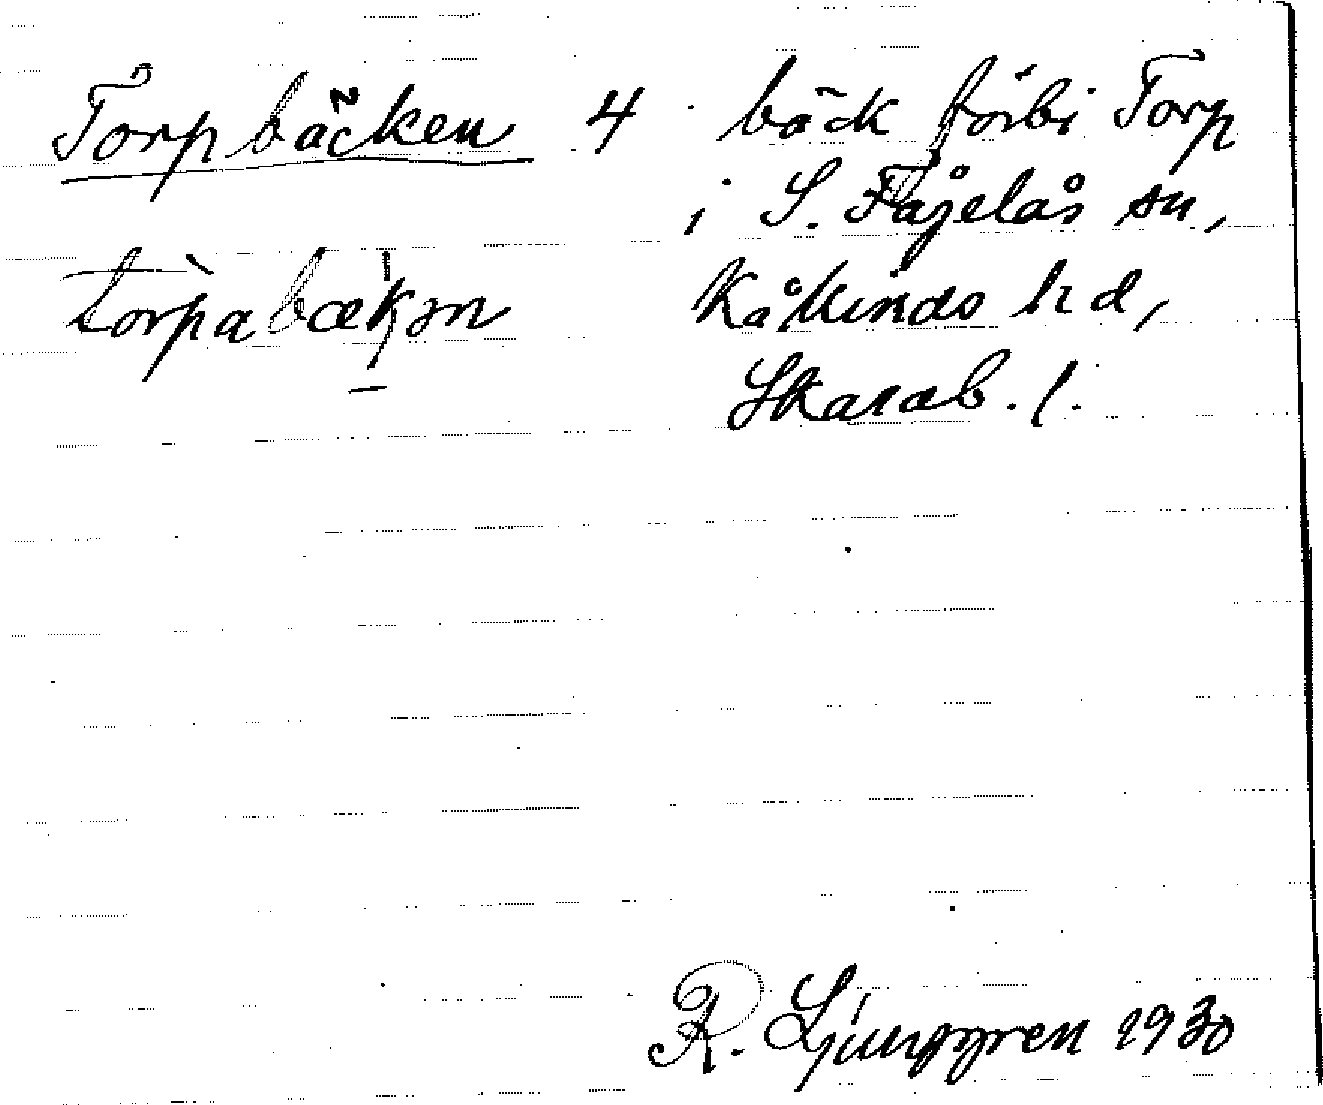 Torpbäcken 4 bäck förbi Torp
i S. Fågelås sn,
tòrpabækən Kåkinds hd,
Skarab. l.
R. Ljunggren 1930